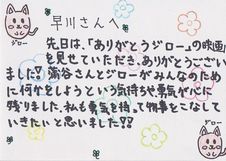 早川さんへ
ジロー
先日は、「ありがとうジロー」の映画
を見せていただき、ありがとうござい
ました!蒲谷さんとジローがみんなのため
に何かをしようという気持ちや勇気が心に
残りました。私も勇気を持って物事をこなして
いきたいと思いました!!
ジロー